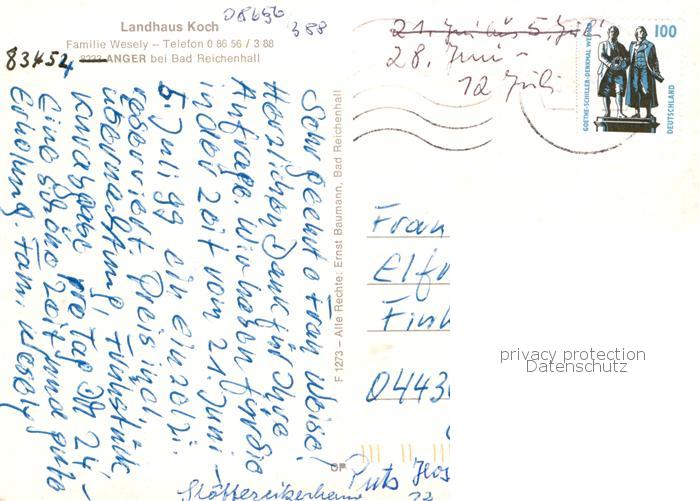 Landhaus Koch
Familie Wesely – Telefon 0 86 56 / 3 88
08656
388
83454 ANGER bei Bad Reichenhall
Sehr geehrte Frau Weise!
Herzlichen Dank für Ihre
Anfrage. Wir haben für Sie
in der Zeit vom 21. Juni –
5. Juli 99 ein Einzelzi.
reserviert. Preis inkl.
Übernachtung, Frühstück,
Kurabgabe pro Tag DM 24,–
Eine schöne Zeit und gute
Erholung. Fam. Wesely
F 1273 – Alle Rechte: Ernst Baumann, Bad Reichenhall
21. Juni bis 5. Juli
28. Juni –
12 Juli
GOETHE-SCHILLER-DENKMAL WEIMAR
100
DEUTSCHLAND
Frau
0443
privacy protection
Datenschutz